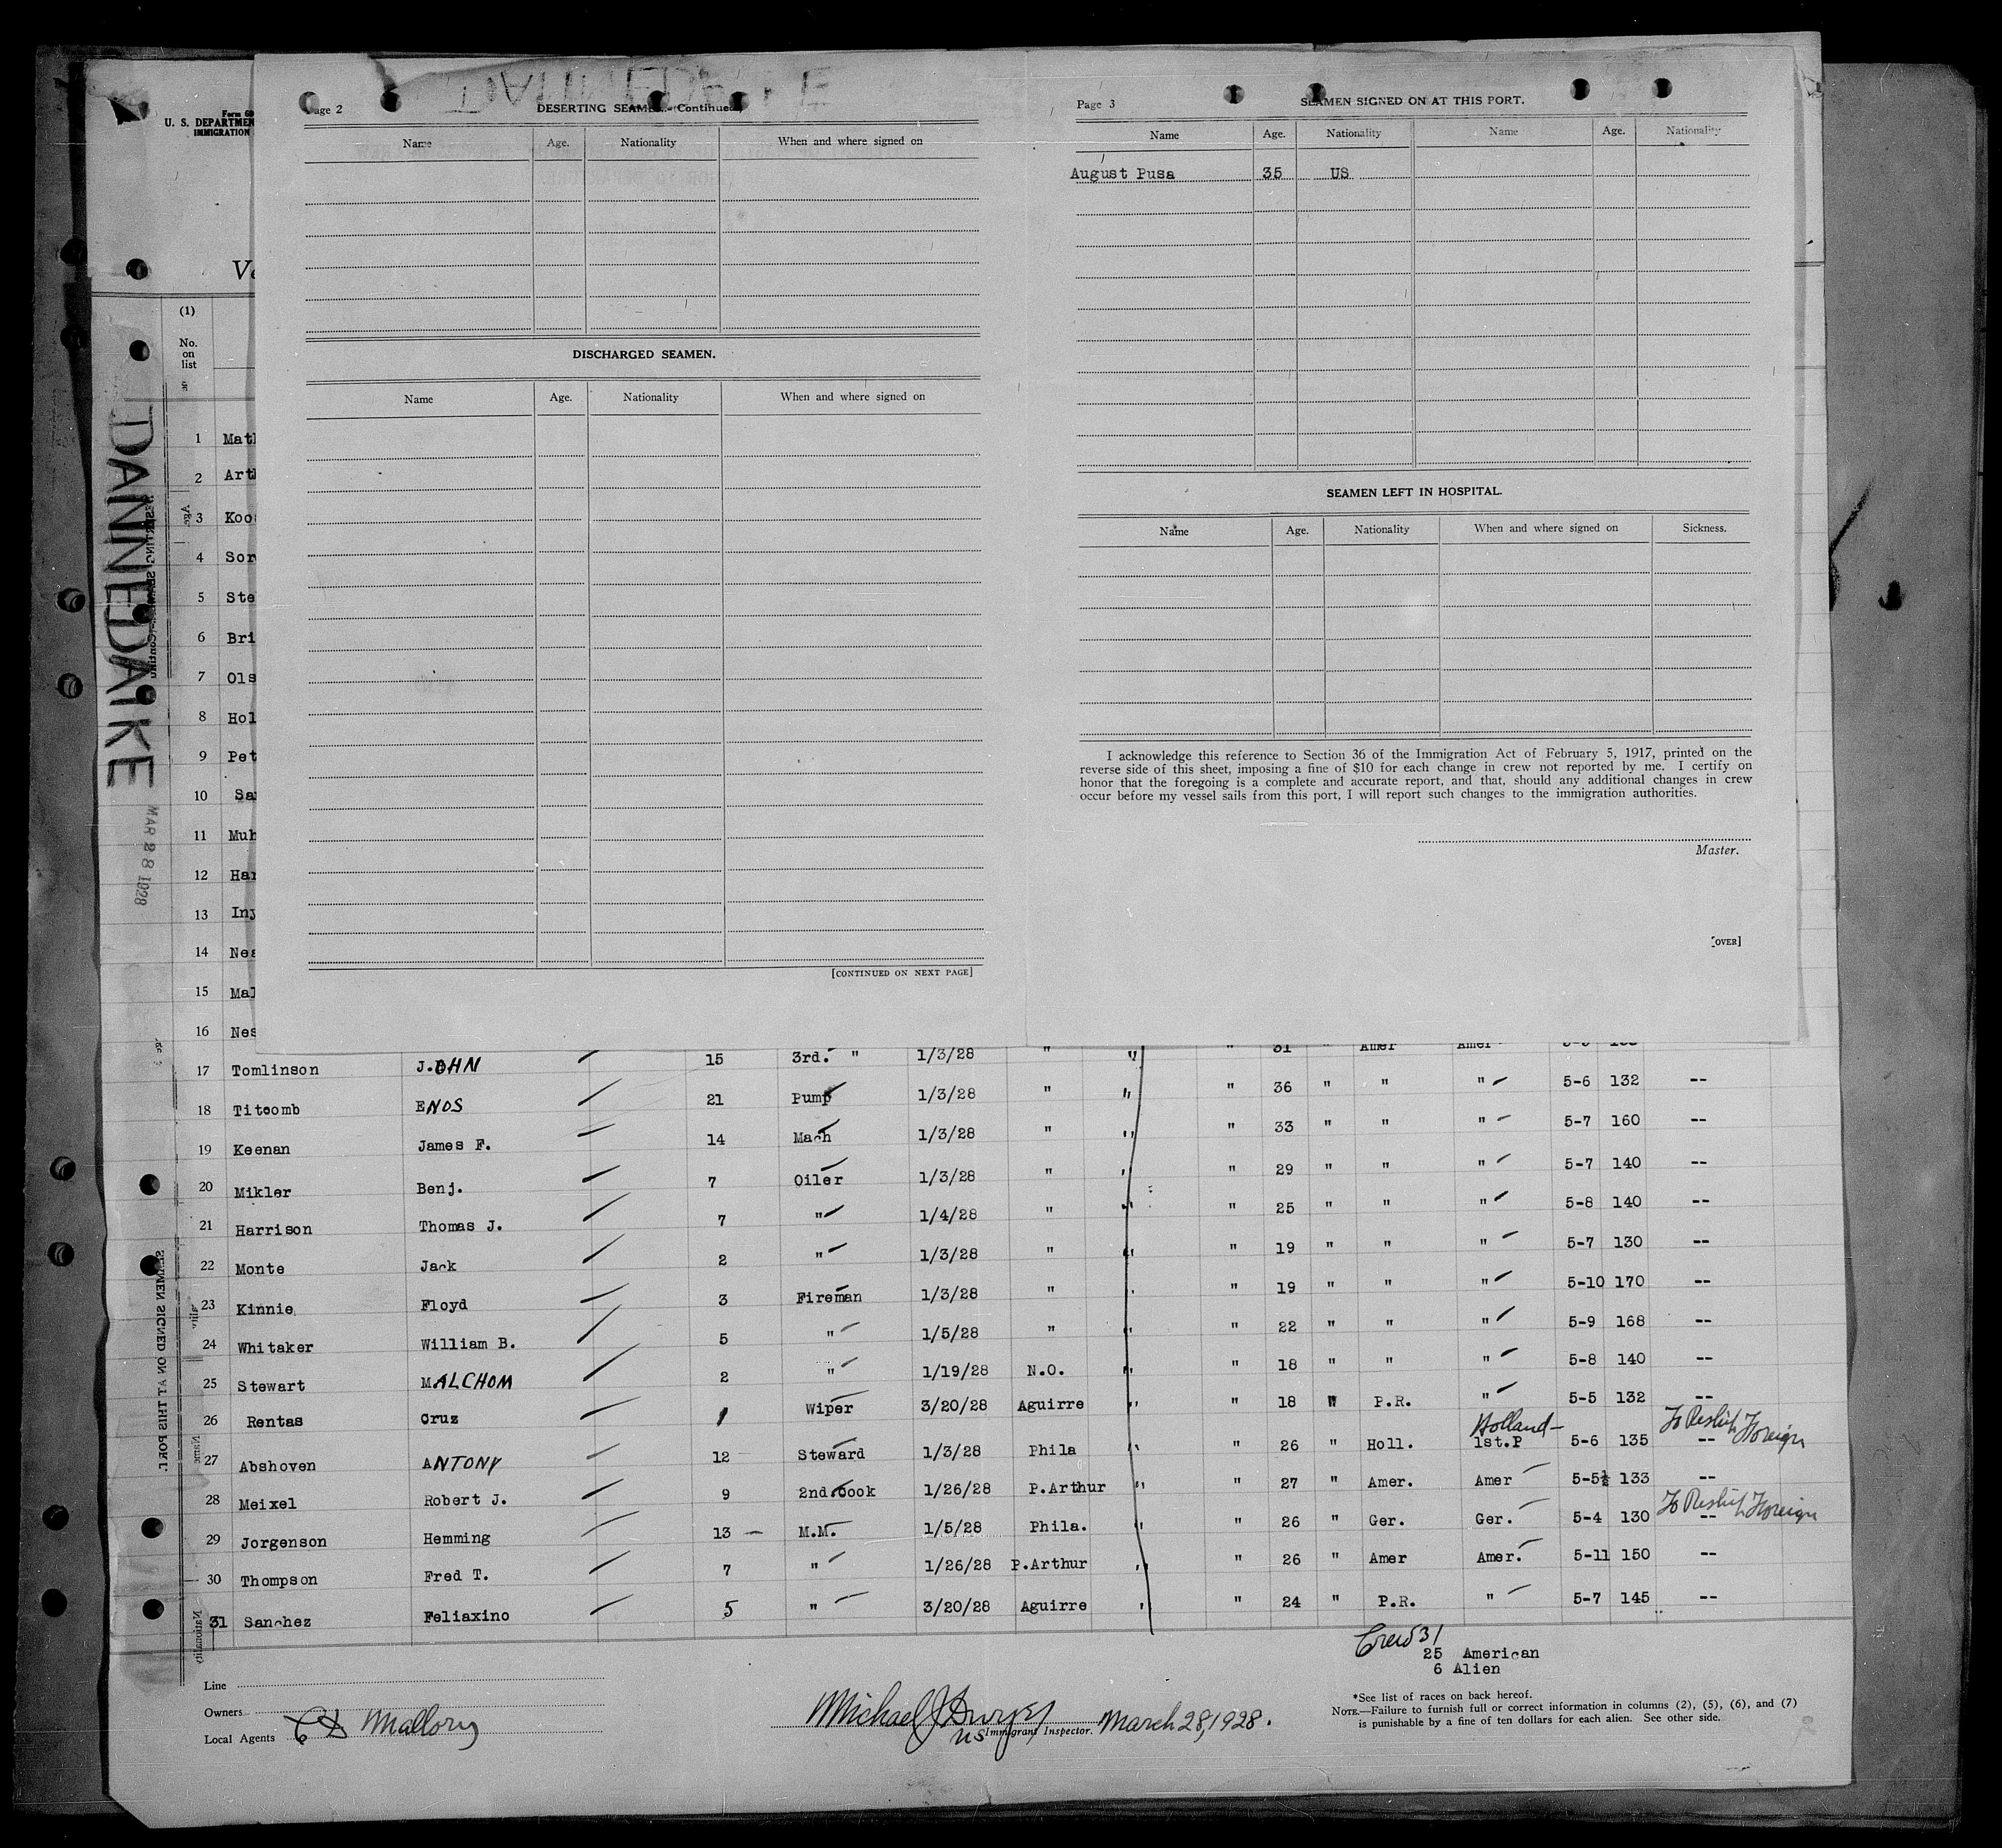 Page 2
DESERTING SEAMEN.—Continued
Name Age. Nationality When and where signed on
DISCHARGED SEAMEN.
Name Age. Nationality When and where signed on
[CONTINUED ON NEXT PAGE]
Page 3
SEAMEN SIGNED ON AT THIS PORT.
Name Age. Nationality Name Age. Nationality
August Pusa 35 US
SEAMEN LEFT IN HOSPITAL.
Name Age. Nationality When and where signed on Sickness.
I acknowledge this reference to Section 36 of the Immigration Act of February 5, 1917, printed on the
reverse side of this sheet, imposing a fine of $10 for each change in crew not reported by me. I certify on
honor that the foregoing is a complete and accurate report, and that, should any additional changes in crew
occur before my vessel sails from this port, I will report such changes to the immigration authorities.
Master.
[OVER]
U. S. DEPARTMEN
IMMIGRATION
(1)
No.
on
list
DANNEDAIKE
MAR 28 1928
1 Math
2 Arth
3 Koo
4 Sor
5 Ste
6 Bri
7 Ols
8 Hol
9 Pet
10 Sa
11 Muh
12 Har
13 Iny
14 Nes
15 Mal
16 Nes
17 Tomlinson J.OHN 15 3rd. " 1/3/28 " " " 31 " Amer Amer
18 Titcomb ENOS 21 Pump 1/3/28 " " " 36 " " " 5-6 132 --
19 Keenan James F. 14 Mach 1/3/28 " " " 33 " " " 5-7 160 --
20 Mikler Benj. 7 Oiler 1/3/28 " " " 29 " " " 5-7 140 --
21 Harrison Thomas J. 7 " 1/4/28 " " " 25 " " " 5-8 140 --
22 Monte Jack 2 " 1/3/28 " " " 19 " " " 5-7 130 --
23 Kinnie Floyd 3 Fireman 1/3/28 " " " 19 " " " 5-10 170 --
24 Whitaker William B. 5 " 1/5/28 " " " 22 " " " 5-9 168 --
25 Stewart MALCHOM 2 " 1/19/28 N.O. " " 18 " " " 5-8 140 --
26 Rentas Cruz 1 Wiper 3/20/28 Aguirre " " 18 " P.R. " 5-5 132 --
Holland- To Reship Foreign
27 Abshoven ANTONY 12 Steward 1/3/28 Phila " " 26 " Holl. 1st.P 5-6 135 --
28 Meixel Robert J. 9 2nd.Cook 1/26/28 P.Arthur " " 27 " Amer. Amer 5-5½ 133 --
To Reship Foreign
29 Jorgenson Hemming 13 M.M. 1/5/28 Phila. " " 26 " Ger. Ger. 5-4 130 --
30 Thompson Fred T. 7 " 1/26/28 P.Arthur " " 26 " Amer Amer. 5-11 150 --
31 Sanchez Feliaxino 5 " 3/20/28 Aguirre " " 24 " P.R. " 5-7 145 --
Crew 31
25 American
6 Alien
Line
Owners
Local Agents C D Mallory
Michael J Dwyer
US Immigrant Inspector. March 28, 1928.
*See list of races on back hereof.
NOTE.—Failure to furnish full or correct information in columns (2), (5), (6), and (7)
is punishable by a fine of ten dollars for each alien. See other side.
SEAMEN SIGNED ON AT THIS PORT.